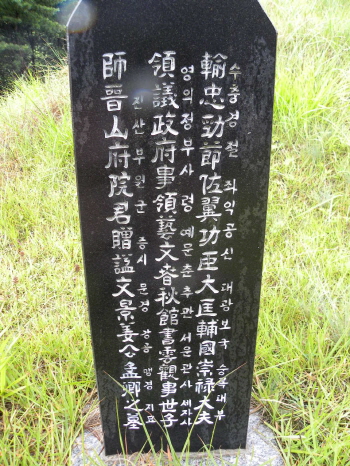 수충경절 좌익공신 대광보국 숭록대부
輸忠勁節佐翼功臣大匡輔國崇祿大夫
영의정부사 령 예문춘추관 서운관사 세자사
領議政府事領藝文春秋館書雲觀事世子
진산부원군 증시 문경 강공 맹경 지묘
師晉山府院君贈諡文景姜公孟卿之墓